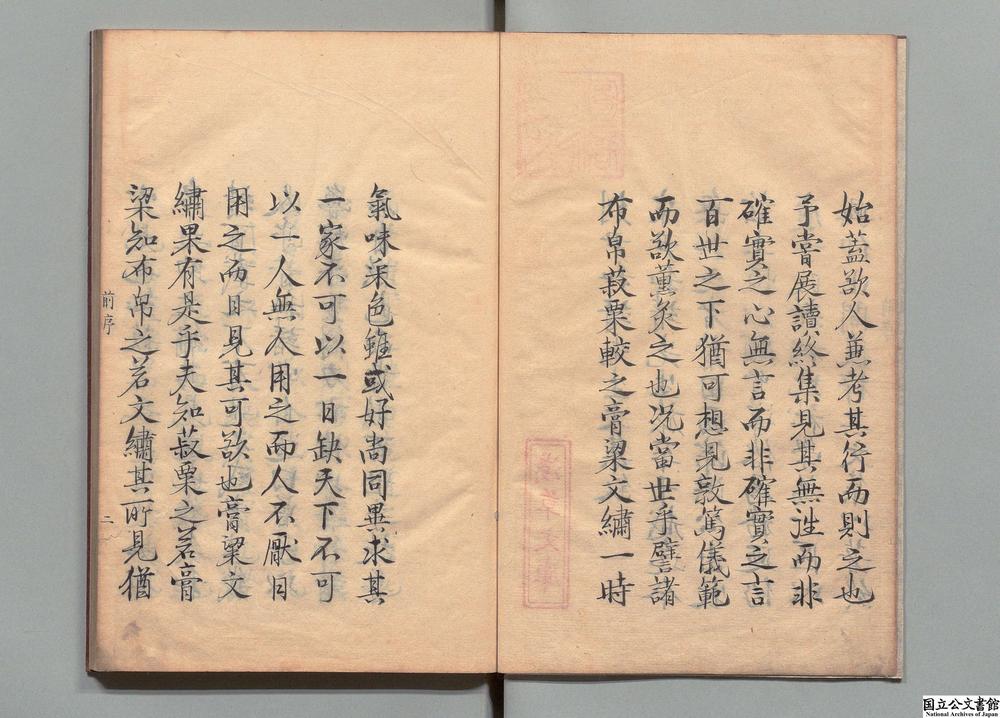 始蓋欲人兼考其行而則之也
予嘗展讀終集見其無泩而非
確實之心無言而非確實之言
百世之下猶可想見敦篤儀範
而欲薰炙之也况當世乎譬諸
布帛菽栗較之膏梁文繡一時
氣味采色雖或好尚同異求其
一家不可以一日缺天下不可
以一人無人用之而人不厭日
用之而日見其可欲也膏粱文
繡果有是乎夫知菽栗之若膏
梁知布帛之若文繡其所見猶
前序
二
国立公文書館
National Archives of Japan